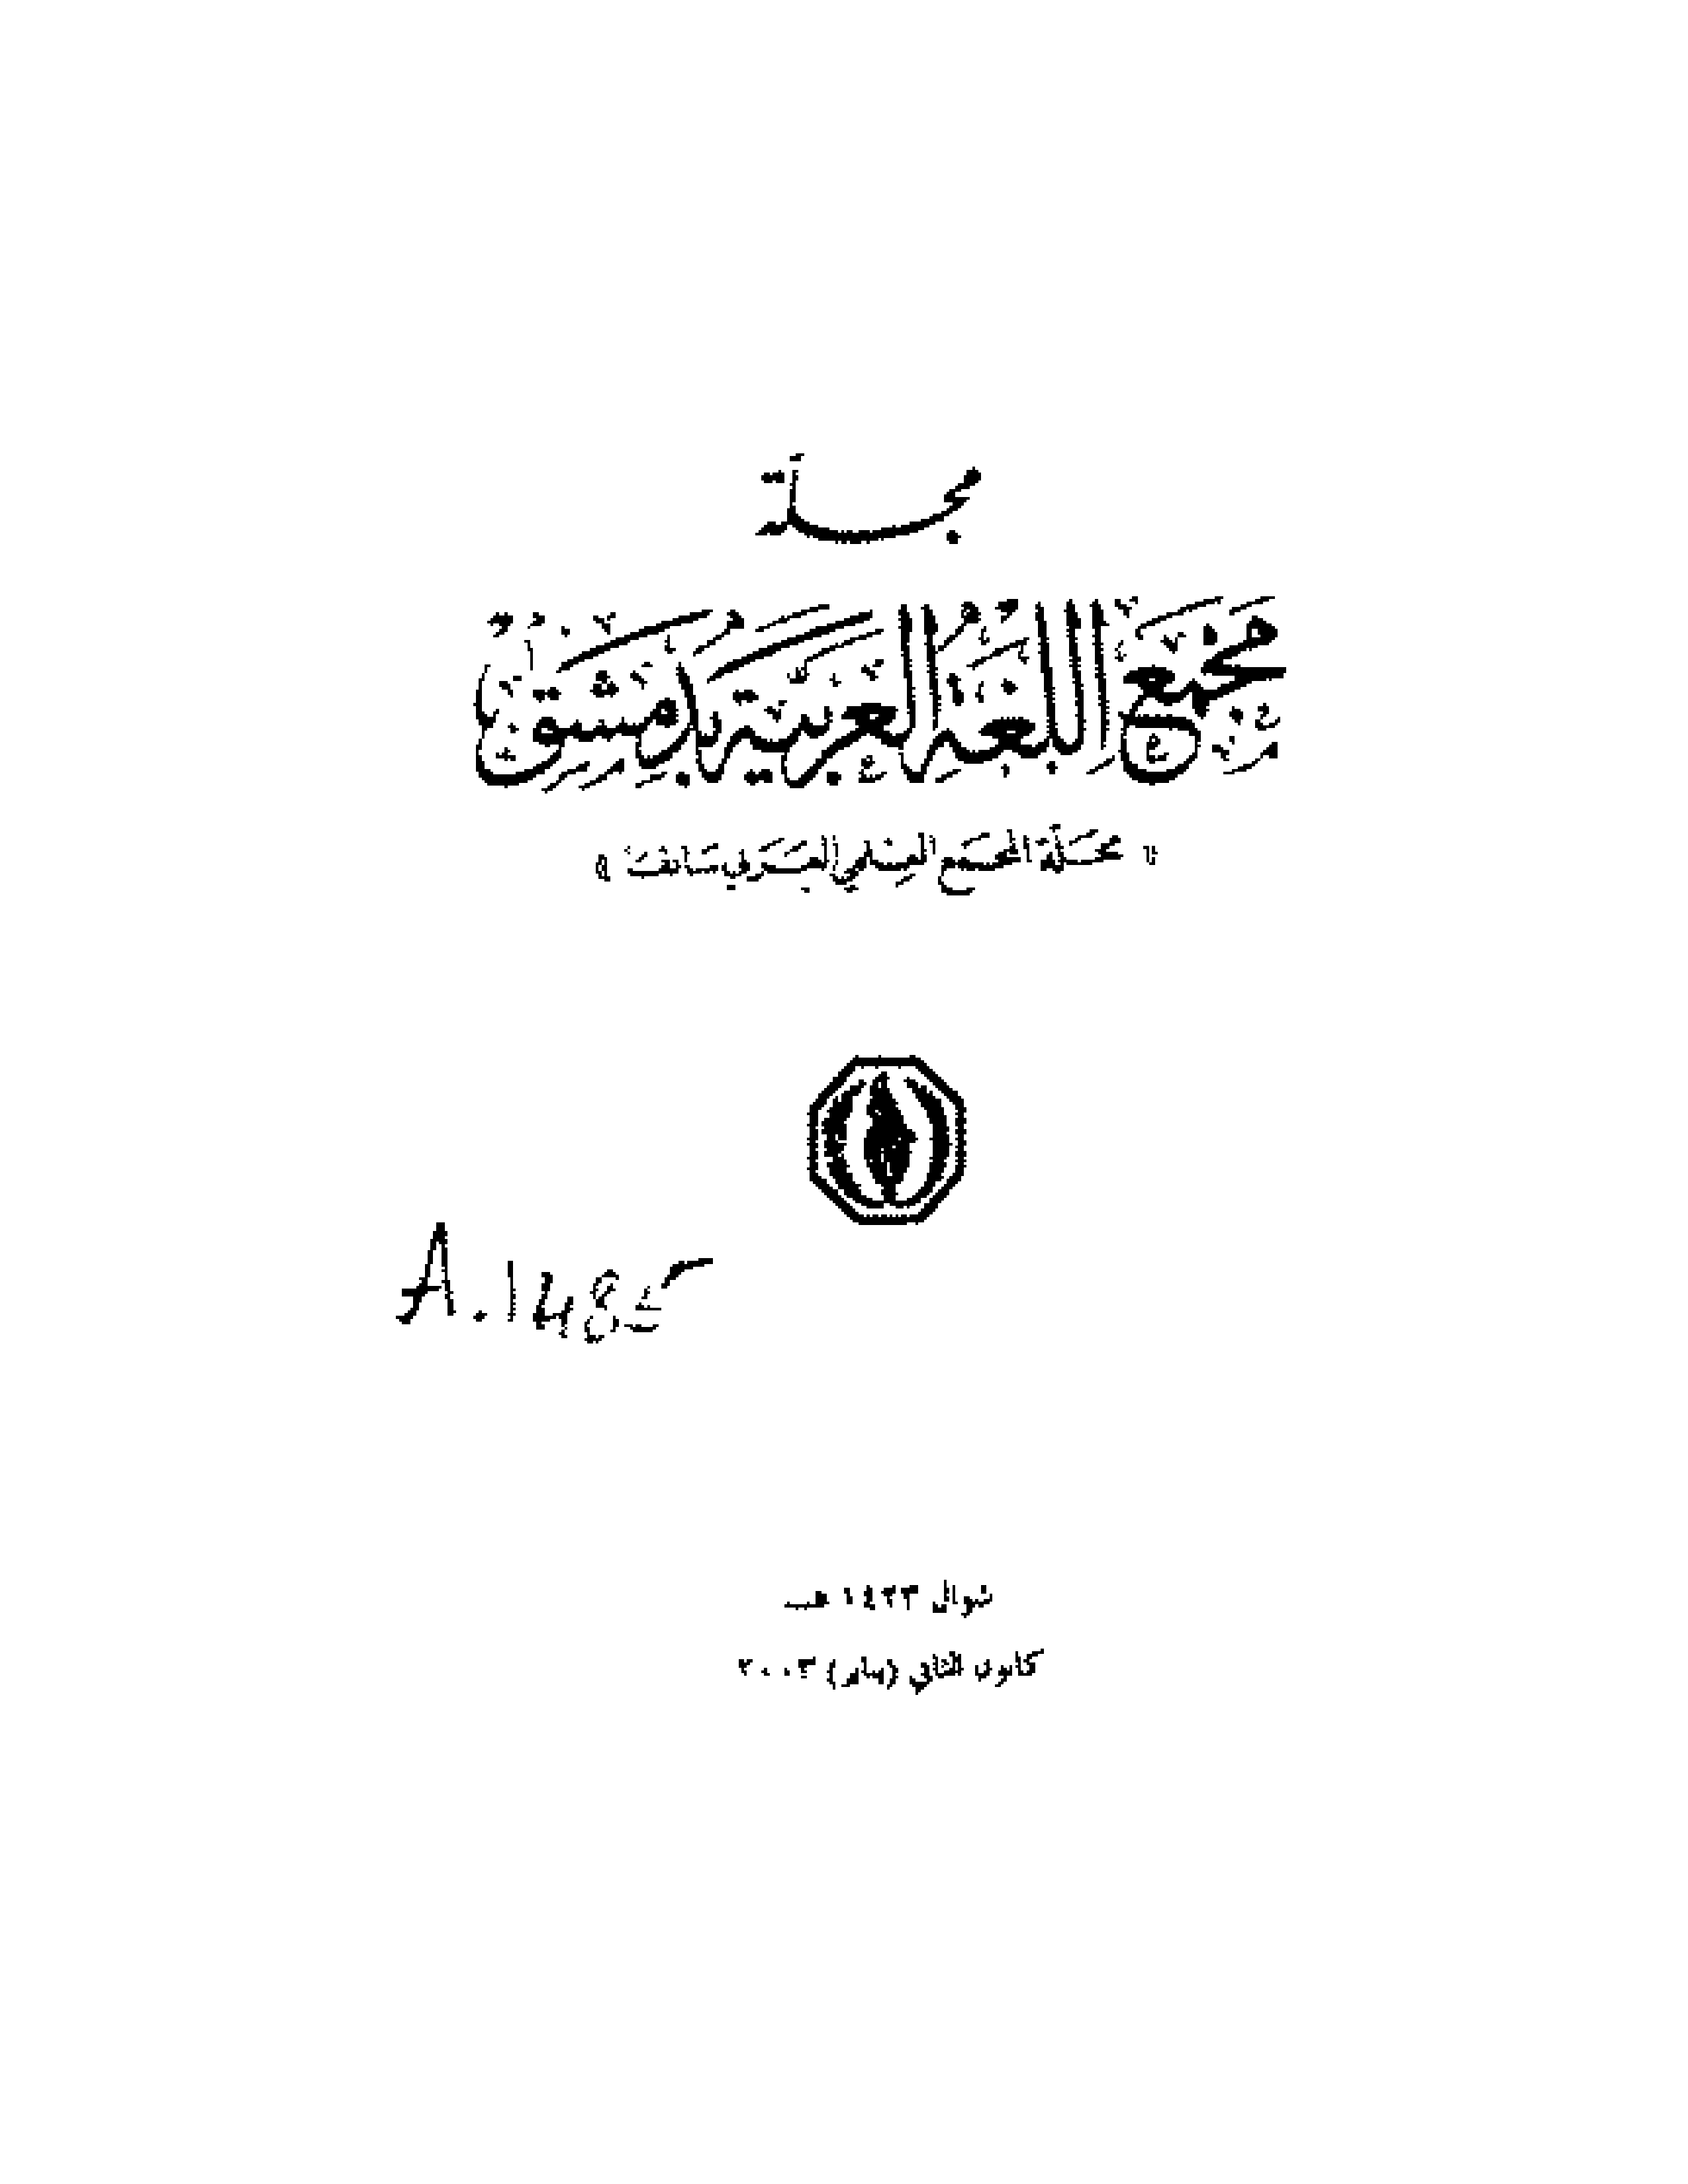 مجلة
مجمع اللغة العربية بدمشق
« مجلة المجمع العلمي العربي سابقاً »
A.1485
شوال ١٤٢٣ هـ
كانون الثاني (يناير) ٢٠٠٣